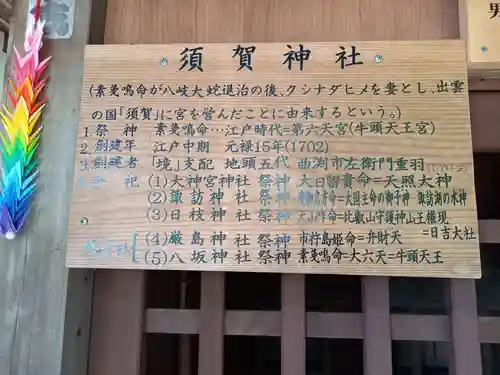 須賀神社
(素戔嗚命が八岐大蛇退治の後、クシナダヒメを妻とし、出雲
の国「須賀」に宮を営んだことに由来するという。)
1. 祭神 素戔嗚命…江戸時代=第六天宮(牛頭天王宮)
2. 創建年 江戸中期 元禄15年(1702)
3. 創建者 「境」支配 地頭五代 曲渕市左衛門重羽
祀 (1) 大神宮神社 祭神 大日孁貴命=天照大神
(2) 諏訪神社 祭神 命=大国主命の御子神 諏訪湖の水神
(3) 日枝神社 祭神 大山咋命=比叡山守護神山王権現
=日吉大社
(4) 厳島神社 祭神 市杵島姫命=弁財天
(5) 八坂神社 祭神 素戔嗚命=大六天=牛頭天王
男